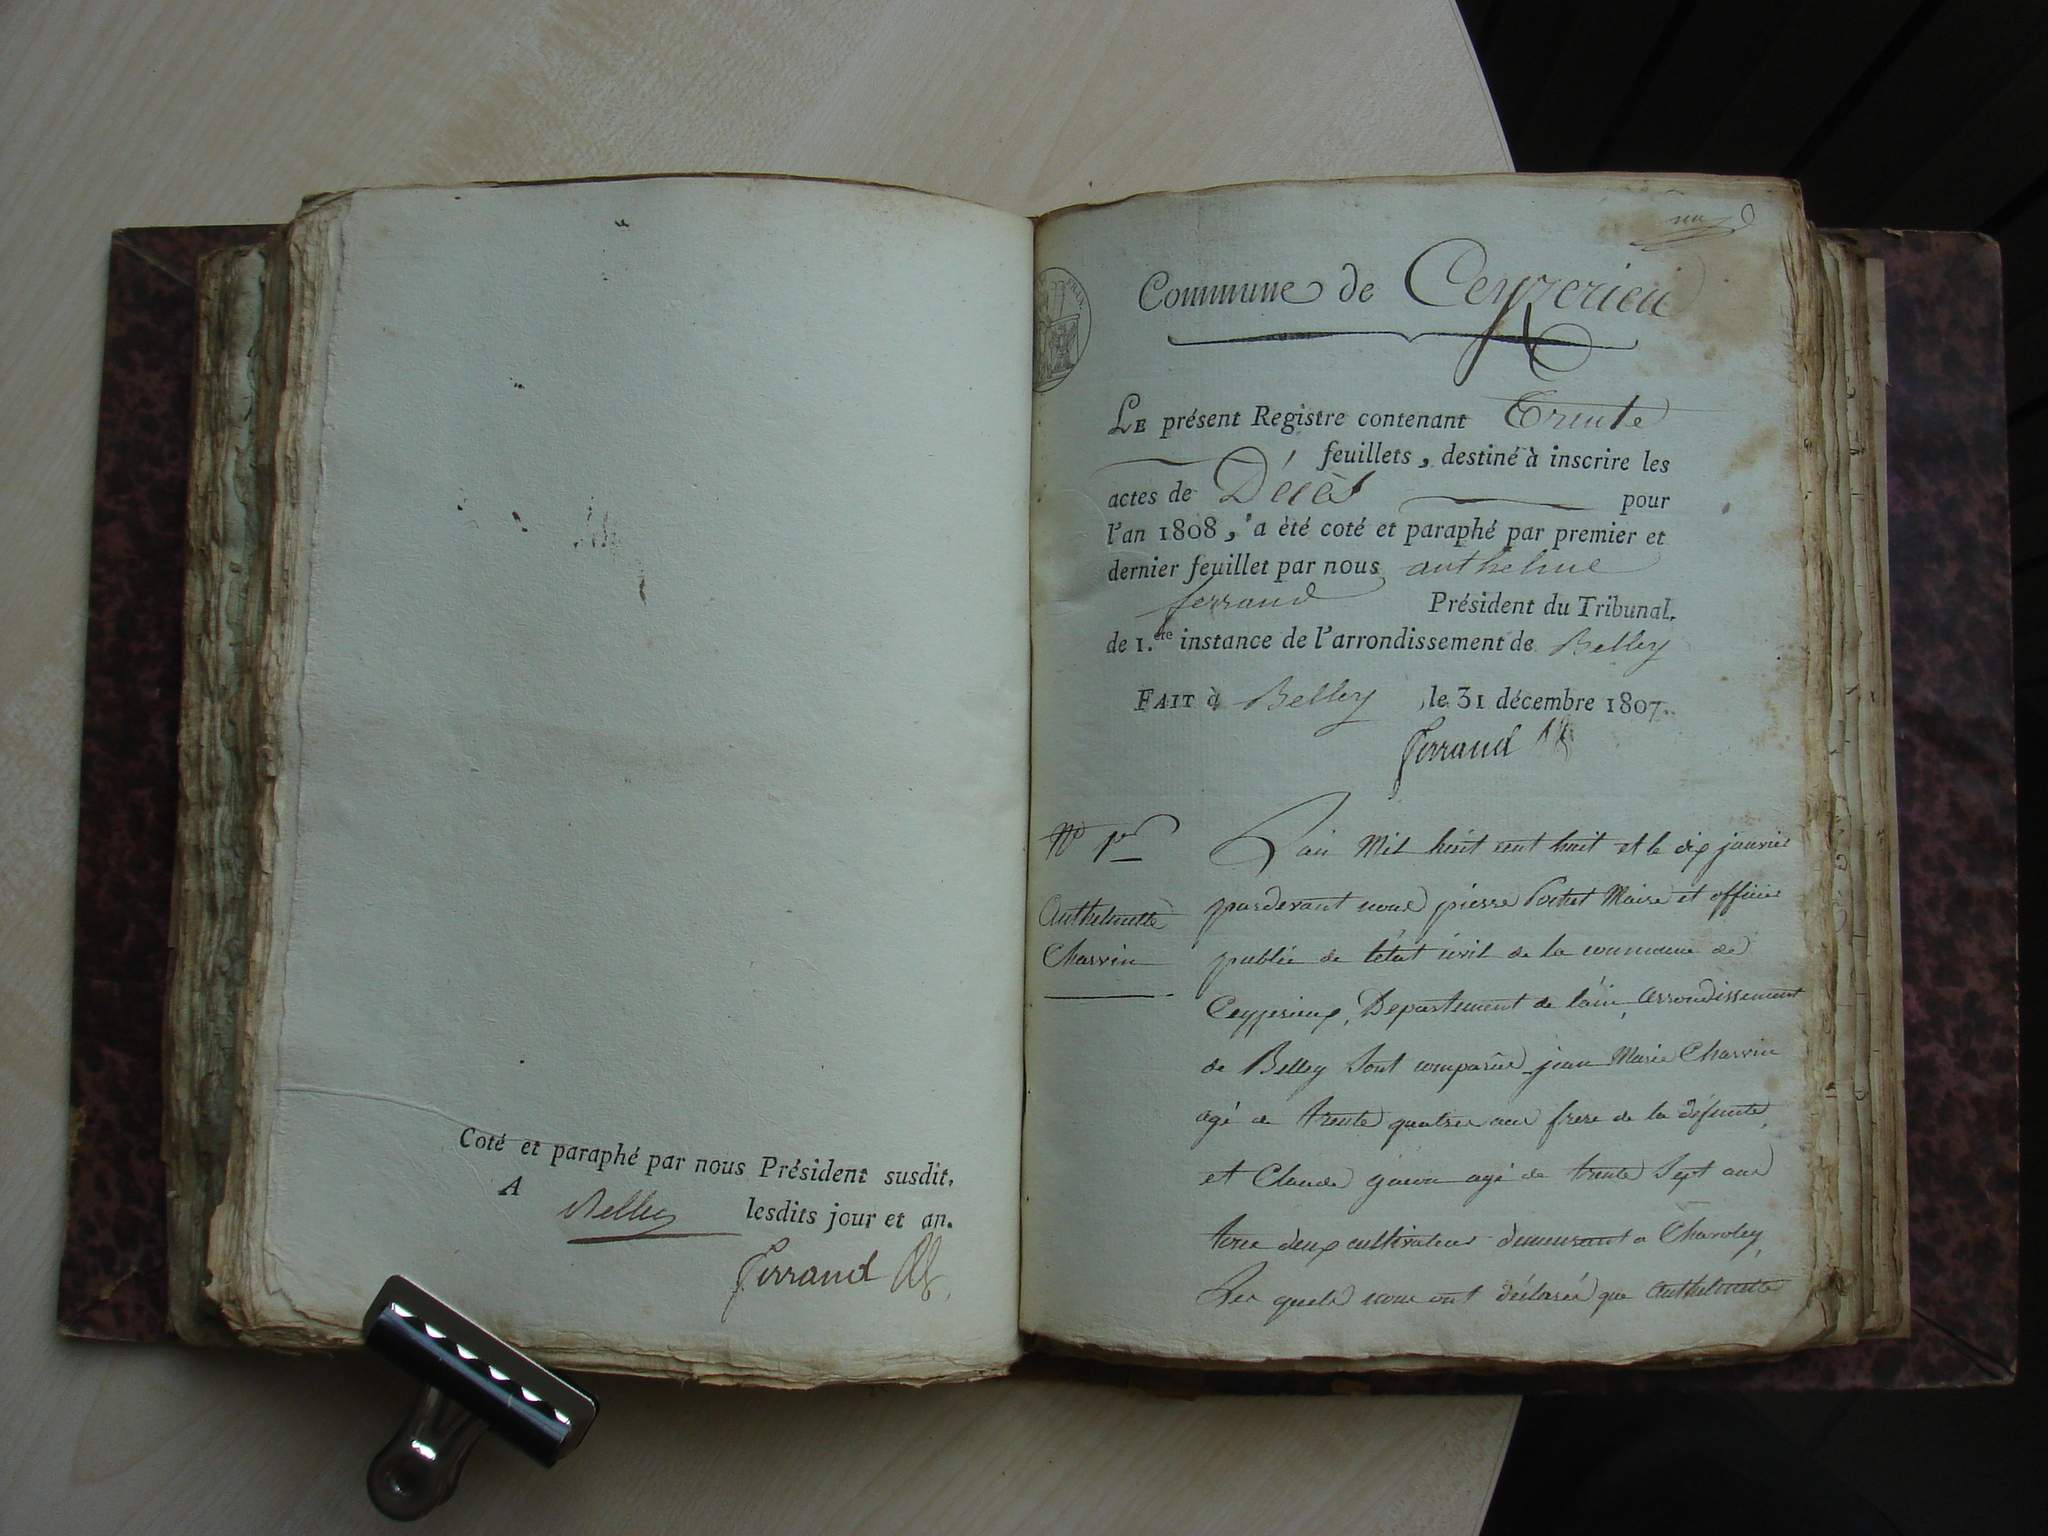 Coté et paraphé par nous Président susdit.
A Belley lesdits jour et an.
Ferrand
Commune de Ceyzerieu
LE présent Registre contenant Trente
feuillets, destiné à inscrire les
actes de Décès pour
l'an 1808, a été coté et paraphé par premier et
dernier feuillet par nous anthelme
ferrand Président du Tribunal.
de 1.ere instance de l'arrondissement de Belley
FAIT à Belley, le 31 décembre 1807.
Ferrand
No 1er
Anthelmette
Charvin
L'an Mil huit cent huit et le dix janvier
pardevant nous pierre Maire et officier
publie de l'état civil de la commune de
Ceyzerieux, Departement de l'ain, arrondissement
de Belley Sont comparus jean Marie Charvin
agé de trente quatre ans frere de la défunte,
et Claude agé de trente Sept ans
tous deux cultivateurs demeurant a Chavoley,
Les quels nous ont déclaré que Anthelmette